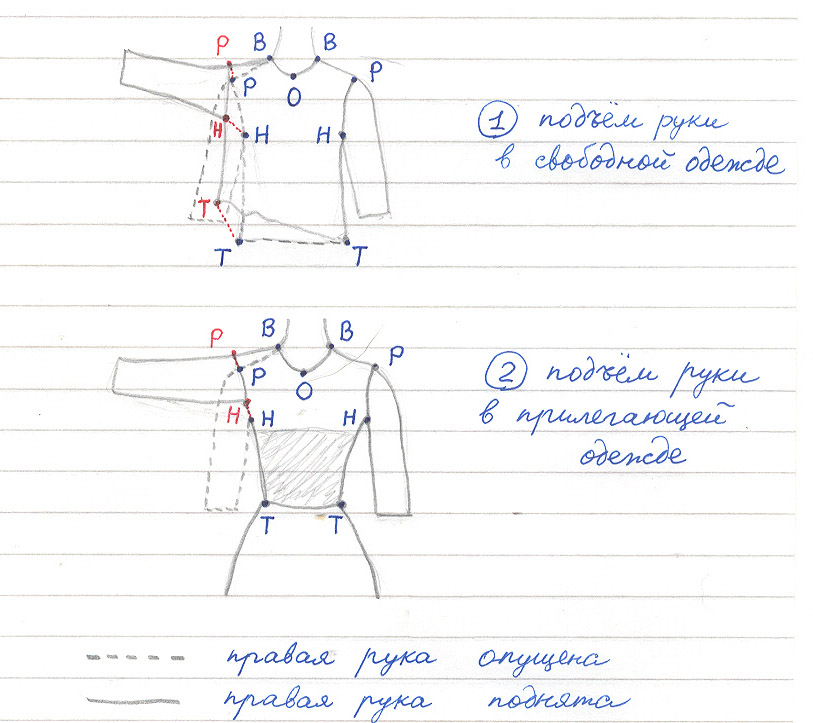 В В
Р Р Р
О
1 подъём руки
в свободной одежде
Н Н Н
Т
Т Т
В В
Р Р Р
О
2 подъём руки
в прилегающей
одежде
Н Н Н
Т Т
правая рука опущена
правая рука поднята